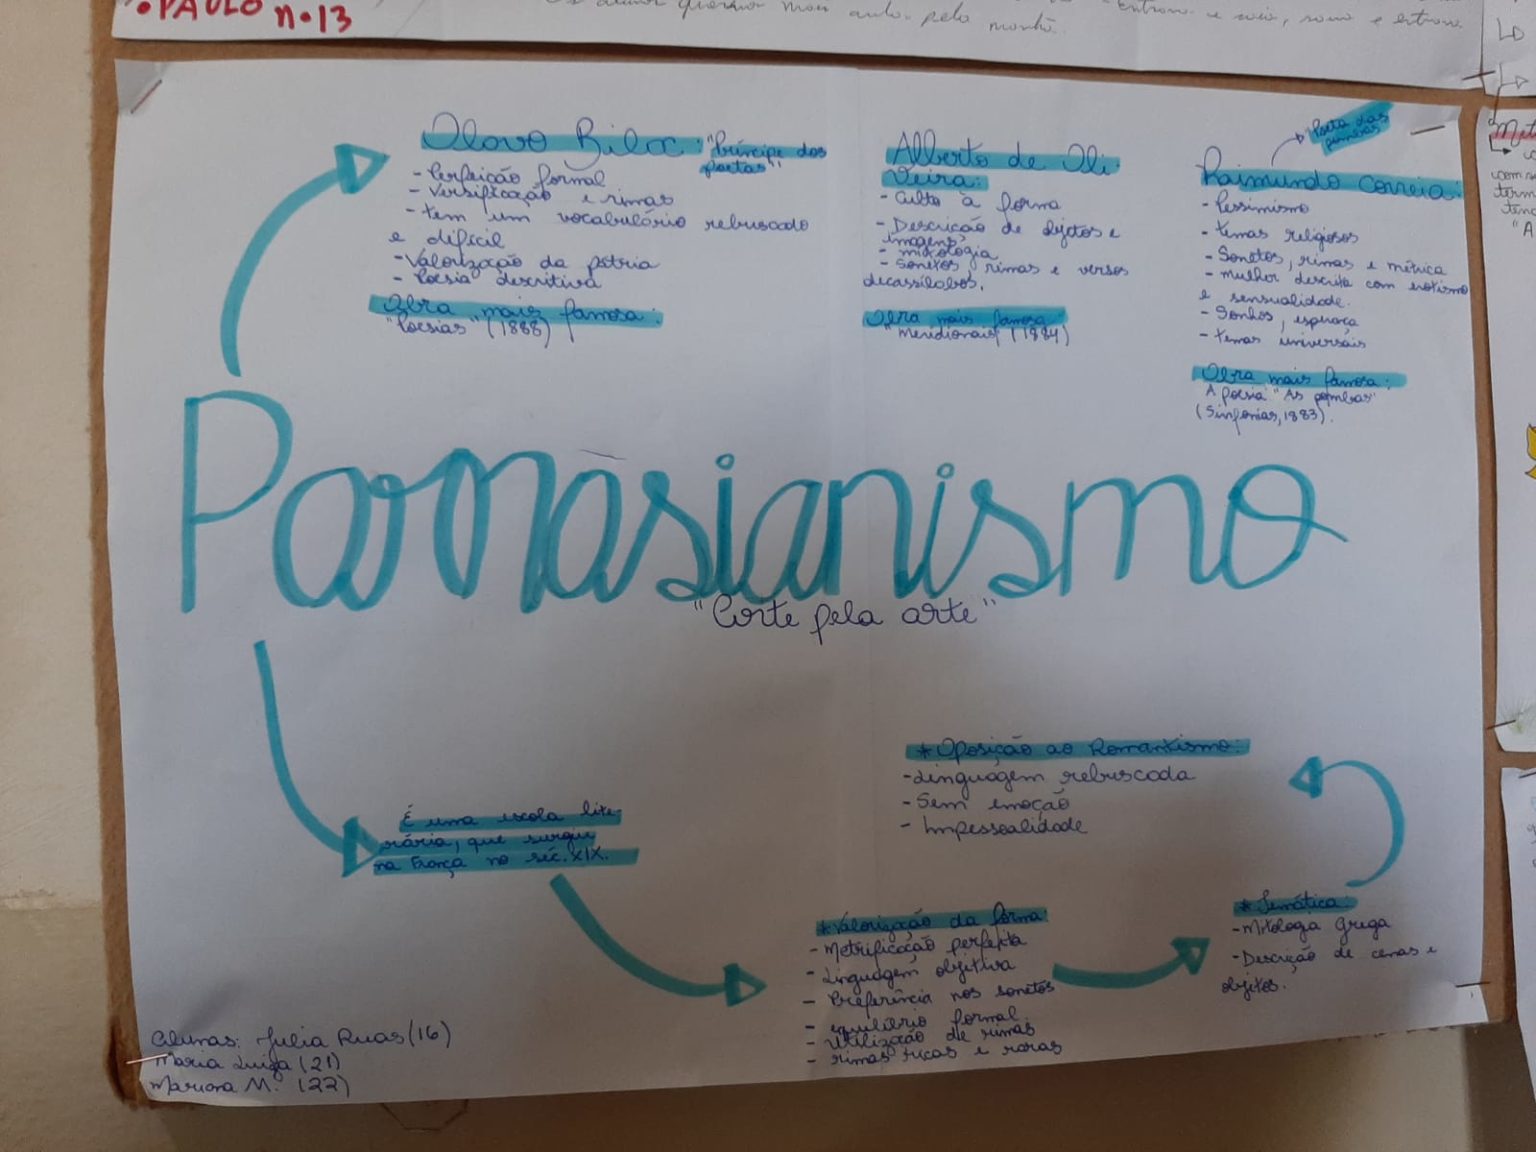 • PAULO n. 13
"Príncipe dos
Olavo Bilac:
poetas"
- Perfeição formal
- Versificação e rimas
- tem um vocabulário rebuscado
e difícil
- Valorização da pátria
- Poesia descritiva
Obra mais famosa:
"Poesias" (1888)
Alberto de Oli
veira:
- Culto à forma
- Descrição de objetos e
imagens
- mitologia
- Sonetos, rimas e versos
decassílabos.
Obra mais famosa:
"Meridionais" (1884)
Poeta das
pombas
Raimundo Correia:
- Pessimismo
- temas religiosos
- Sonetos, rimas e métrica
- mulher descrita com erotismo
e sensualidade.
- Sonhos, esperança
- temas universais
Obra mais famosa:
A poesia "As pombas"
(Sinfonias, 1883).
Parnasianismo
"Corte pela arte"
É uma escola lite
rária, que surgiu
na França no séc. XIX.
* Valorização da forma:
- Metrificação perfeita
- Linguagem objetiva
- Preferência nos sonetos
- equilíbrio formal
- Utilização de rimas
- rimas ricas e raras
* Temática:
- Mitologia Grega
- Descrição de cenas e
objetos.
* Oposição ao Romantismo:
- Linguagem rebuscada
- Sem emoção
- Impessoalidade
Alunas: Julia Ruas (16)
Maria Luiza (21)
Mariana M. (22)